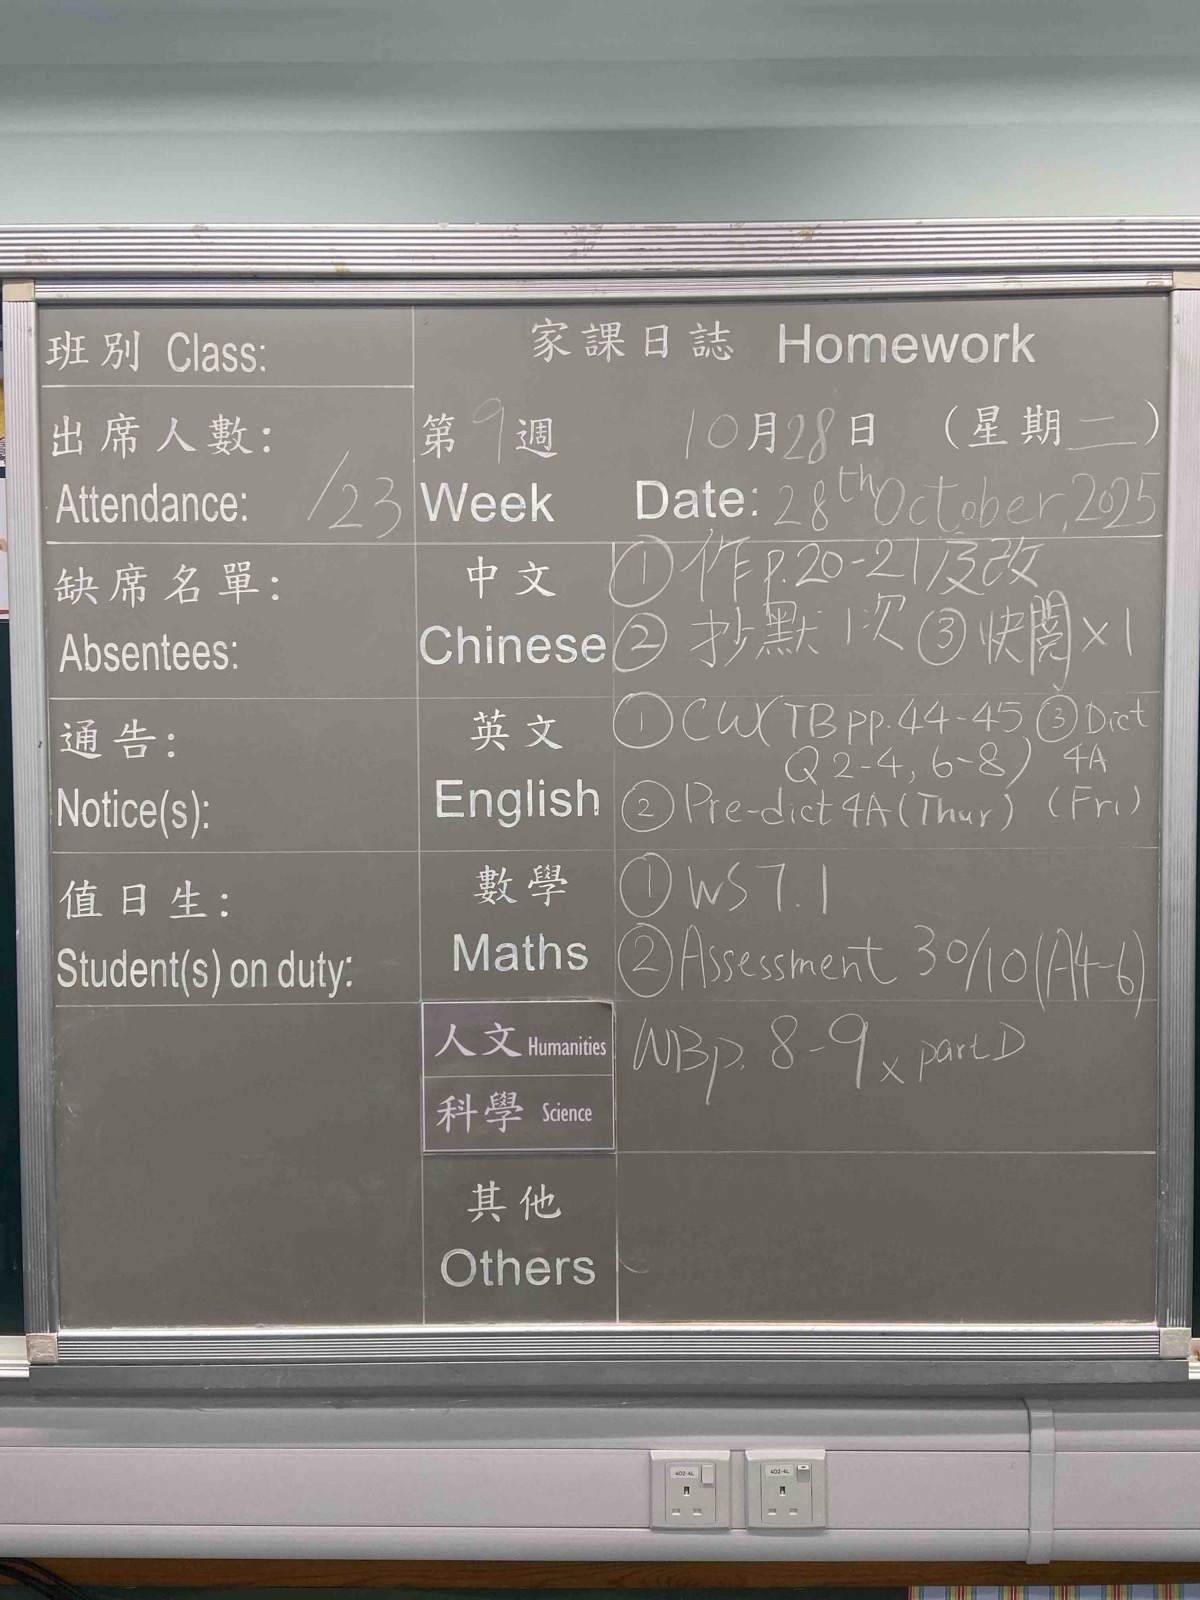 班別 Class:
家課日誌 Homework
出席人數:
Attendance: /23
第9週 10月28日 (星期二)
Week Date: 28th October, 2025
缺席名單:
Absentees:
中文
Chinese
① 作p.20-21及改
② 抄默1次 ③ 快閱×1
通告:
Notice(s):
英文
English
① CW(TB pp.44-45 ③ Dict
Q 2-4, 6-8) 4A
② Pre-dict 4A (Thur) (Fri)
值日生:
Student(s) on duty:
數學
Maths
① WS 7.1
② Assessment 30/10 (A4-6)
人文 Humanities
WB p. 8-9 x part D
科學 Science
其他
Others
402-4L
402-4L